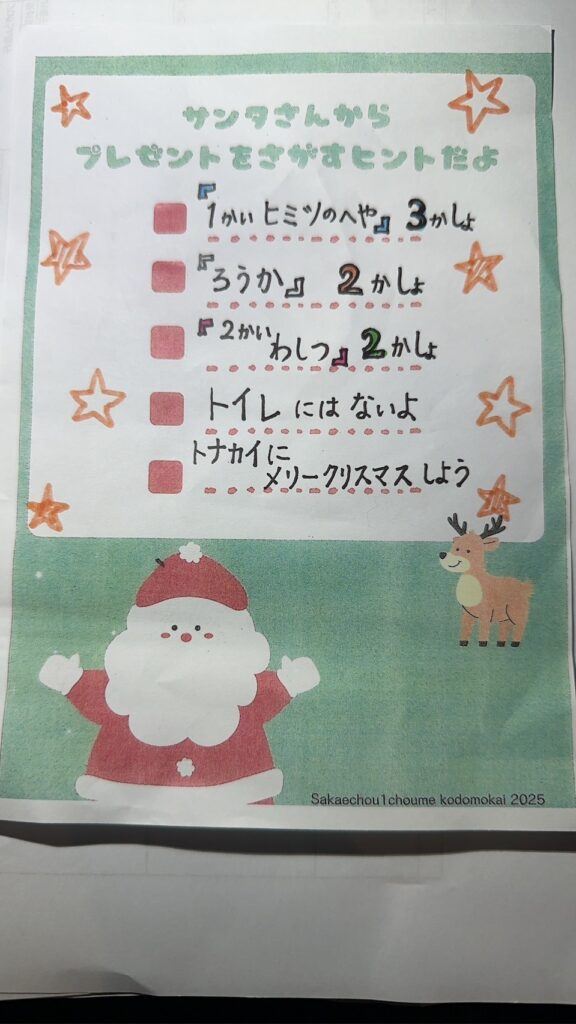 サンタさんから
プレゼントをさがすヒントだよ
『1かいヒミツのへや』3かしょ
『ろうか』 2かしょ
『2かいわしつ』2かしょ
トイレにはないよ
トナカイに
メリークリスマスしよう
Sakaechou1choume kodomokai 2025